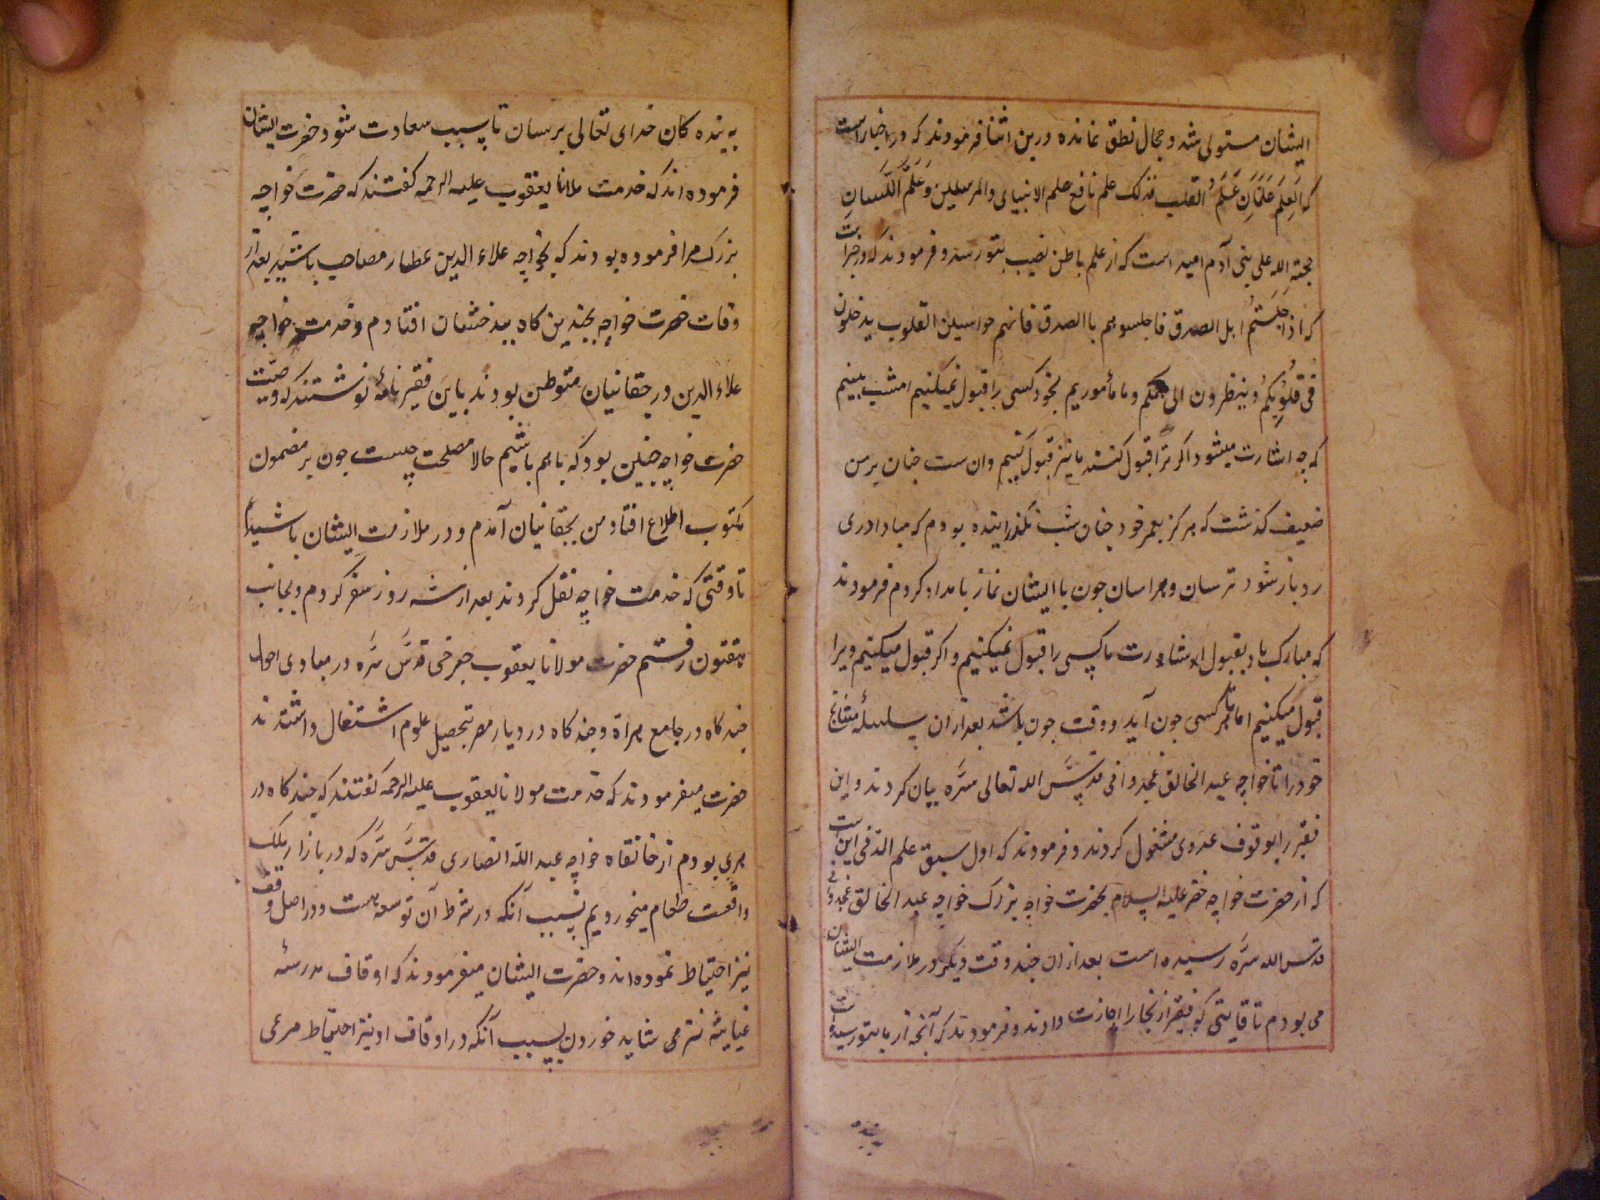 ایشان مستولی شد و مجال نطق نمانده درین اثنا فرمودند که در اخبار است
که العلم علمان علم القلب فذلک علم نافع علم الانبیای والمرسلین و علم اللسان
حجة الله علی بنی آدم امید است که از علم باطن نصیب بتو رسد و فرمودند که در خبر است
که اذا جلستم اهل الصدق فاجلسوهم باالصدق فانهم جواسیس القلوب یدخلون
فی قلوبکم و ینظرون الی هممکم و ما مأموریم بخود کسی را قبول نمیکنیم امشب ببینیم
که چه اشارت میشود اکر ترا قبول کنند ما نیز قبول کنیم و ان ست چنان بر من
ضعیف کذشت که هرکز بعمر خود چنان شب نکذرانیده بودم که مبادا دری
رد باز شود ترسان و هراسان چون با ایشان نماز بامداد کردم فرمودند
که مبارک باد بقبول اشارت ما کسی را قبول نمیکنیم و اکر قبول میکنیم ویرا
قبول میکنیم اما تا هر کسی چون آید و وقت چون باشد بعد از ان سلسلهٔ مشایخ
خود را تا خواجه عبد الخالق غجدوانی قدس الله تعالی سره بیان کردند و این
فقیر را بوقوف عددی مشغول کردند و فرمودند که اول سبق علم الدنی این است
که از حضرت خواجه خضر علیه السلام بحضرت خواجه بزرک خواجه عبد الخالق غجدوانی
قدس الله سره رسیده است بعد از ان چند وقت دیکر در ملازمت ایشان
می بودم تا قایتی که فقیر از بخارا اجازت دادند و فرمودند که آنچه از ما بتو رسیده است
به بنده کان خدای تعالی برسان تا سبب سعادت شود حضرت ایشان
فرموده اند که خدمت ملانا یعقوب علیه الرحمه کفتند که حضرت خواجه
بزرک مرا فرموده بودند که بخواجه علاء الدین عطار مصاحب باشید بعد از
وفات حضرت خواجه بچندین کاه ببدخشان افتادم و خدمت خواجه
علاء الدین در چغانیان متوطن بودند باین فقیر نامهٔ نوشتند که وصیت
حضرت خواجه چنین بود که باهم باشیم حالا مصلحت چیست چون بر مضمون
مکتوب اطلاع افتاد من بچغانیان آمدم و در ملازمت ایشان باشیدم
تا وقتی که خدمت خواجه نقل کردند بعد از سه روز سفر کردم و بجانب
هلغتون رفتم حضرت مولانا یعقوب چرخی قدس سره در مبادی احوال
چند کاه در جامع هراة و چند کاه در دیار مصر بتحصیل علوم اشتغال داشتند
حضرت میفرمودند که خدمت مولانا یعقوب علیه الرحمه کفتند که چند کاه در
هری بودم از خانقاه خواجه عبد الله انصاری قدس سره که در بازار ملک
واقعست طعام میخوردیم بسبب آنکه در شرط آن توسعه هست و در اصل وقف
نیز احتیاط نموده اند و حضرت ایشان میفرمودند که اوقاف مدرسهٔ
غیاثیه نیز می شاید خوردن بسبب آنکه در اوقاف او نیز احتیاط مرعی